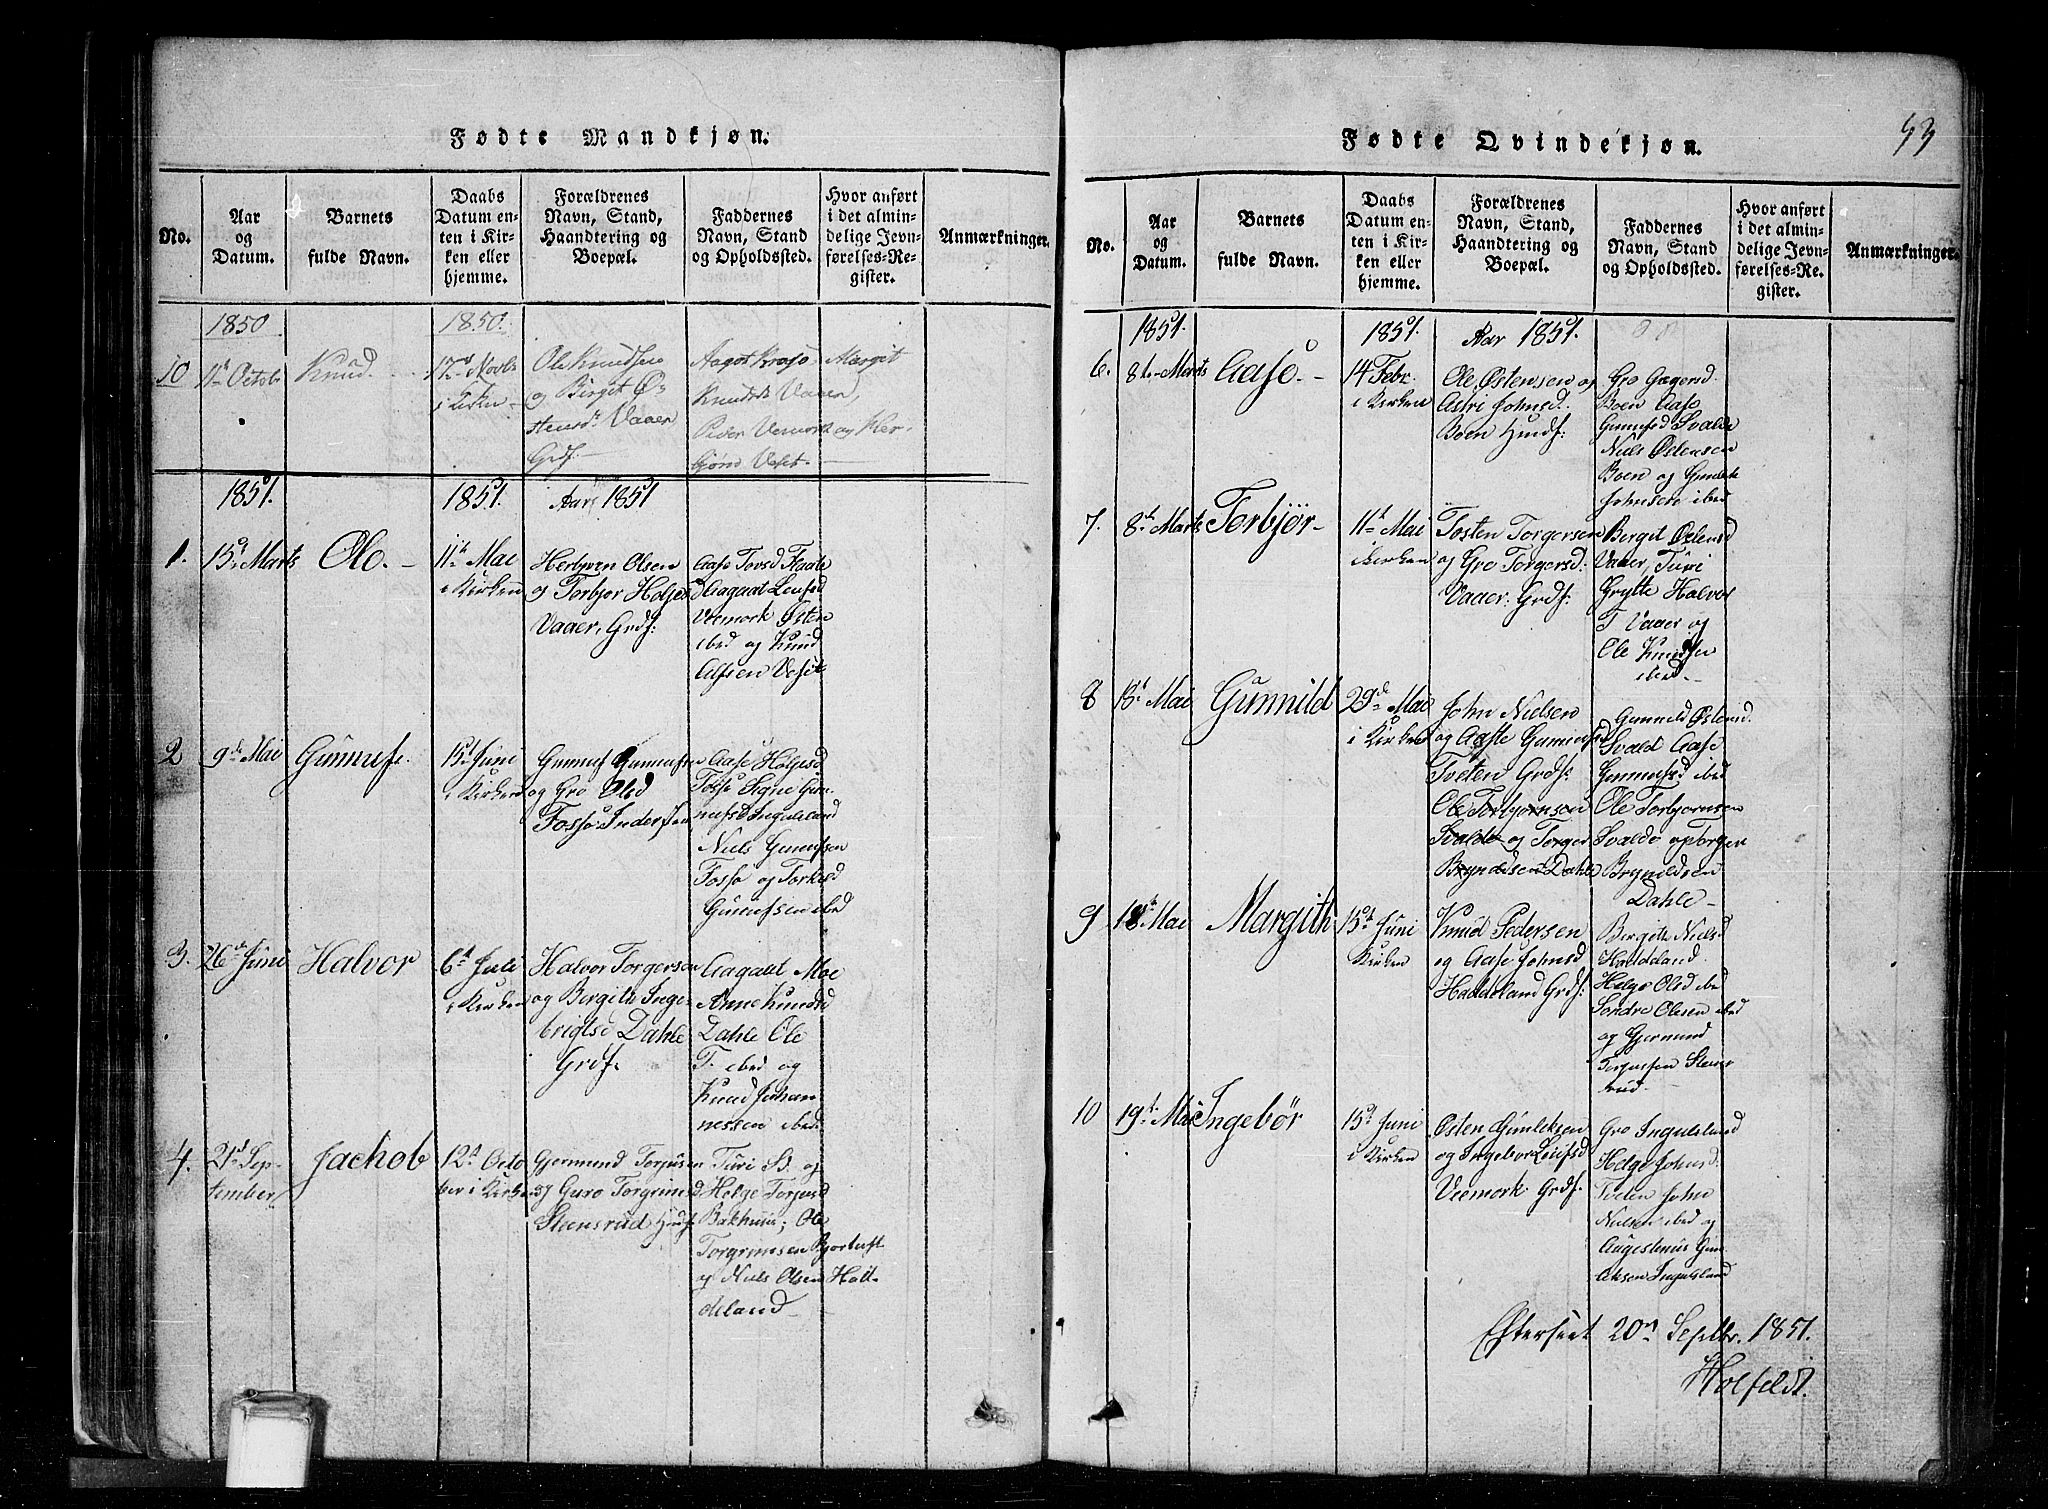 Fødte Mandkjøn.
No.
Aar
og
Datum.
Barnets
fulde Navn.
Daabs
Datum en-
ten i Kir-
ken eller
hjemme.
Forældrenes
Navn, Stand,
Haandtering og
Boepæl.
Faddernes
Navn, Stand
og Opholdssted.
Hvor anført
i det almin-
delige Jevn-
førelses-Re-
gister.
Anmærkninger.
1850
1850.
10
11te Octob
Knud.
12te Novbr
i Kirken
Ole Knudsen
og Birget Ø-
stensdr Vaaer
Grdf.
Aagot Krosso Marget
Knudsd. Vaaer,
Peder Vemork og Her-
bjørn Veset.
1851.
1851.
Aar 1851
1.
15de Marts
Ole.
11te Mai
i Kirken
Herbjørn Olsen
og Torbjør Holjesd
Vaaer, Grdf:
Aase Torsd
Aagaat Leufsd
Vœmork Østen
ibed og Knud
Alfsen Veset
2
9de Mai
Gunnuf.
15de Juni
i Kirken
Gunnuf Gunnufsen
og Gro Olsd
Fosso: Inderst
Aase Holjesd
Fosso Signe Gun-
nufsd Ingulsland
Niels Gunnufsen
Fosso og Torkild
Gunnufsen ibed
3.
26de Juni
Halvor
6te Juli
i Kirken
Halvor Torgersen
og Bergith Inge-
brigtsd Dahle
Grdf.
Aagaat Moe
Anne Knudsd
Dahle Ole
T. ibed og
Knud Johan
nessen ibed.
4.
21de Sep-
tember
Jachob
12te Octo
ber i Kirken
Gjermund Torjusen
og Guro Torgrimsd
Stensrud Husf
Turi S. og
Helge Torjusd
Bakhuus; Ole
Torgrimsen Bjortuft
og Niels Olsen Had-
deland
53
Fødte Qvindekjøn.
No.
Aar
og
Datum.
Barnets
fulde Navn.
Daabs
Datum en-
ten i Kir-
ken eller
hjemme.
Forældrenes
Navn, Stand,
Haandtering og
Boepæl.
Faddernes
Navn, Stand
og Opholdssted.
Hvor anført
i det almin-
delige Jevn-
førelses-Re-
gister.
Anmærkninger.
1851.
1851.
Aar 1851.
6.
8te Marts
Aase.
14 Febr.
i Kirken
Ole Østensen og
Astri Johnsd.
Boen Husf:
Gro Gregersd.
Boen Aase
Gunnufsd Svalde
Niels Østensen
Boen og Gunlek
Johnsen ibed
7.
8te Marts
Torbjør
11te Mai
i Kirken
Tosten Torgersen
og Gro Torgersd:
Vaaer: Grdf:
Bergit Østensd
Vaaer, Turi
Grytte Halvor
T Vaaer og
Ole Knudsen
ibed.
8
15de Mai
Gunnild
29de Mai
i Kirken
John Nielsen
og Aaste Gunnufsd
Tveten Grdf:
Ole Torbjørnsen
Svalde og Torger
Bryndelsen Dahle
Gunnild Østensd.
Svald Aase
Gunnufsd ibed
Ole Torbjørnsen
Svalde og Torger
Brynildsen
Dahle
9
18de Mai
Margith
15de Juni
i Kirken
Knud Pedersen
og Aase Johnsd
Haddeland Grdf:
Bergitte Nielsd
Haddeland.
Helge Olsd ibed
Sondre Olsen ibed
og Gjermund
Torjussen Stens-
rud
10
19de Mai
Ingebør
15de Juni
i Kirken
Østen Gunleksen
og Ingebor Leifsd
Vœmork Grdf:
Gro Ingulsland
Helge Johnsd.
John
Nielsen ibed og
Augestinus Gun-
leksen Ingulsland
Efterseet 20de Septbr. 1851.
Holfeldt.